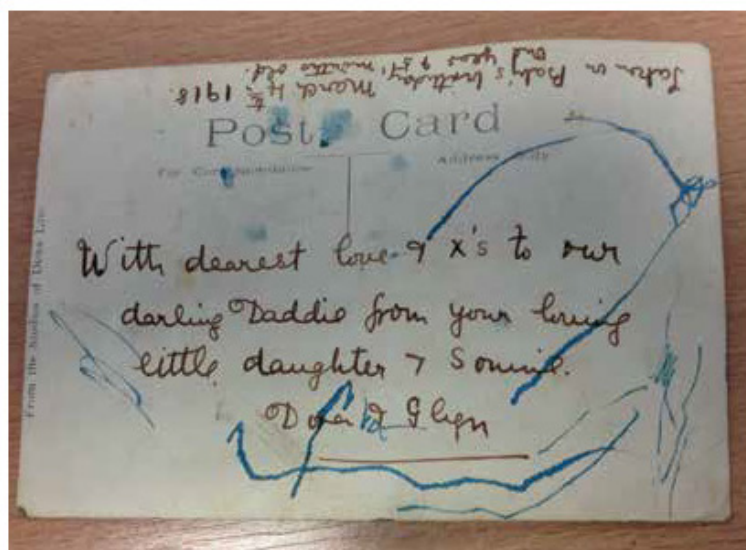 Taken on Baby's birthday, March 4th 1918.
one year & 5½ months old.
Post Card
For Correspondence
Address Only
From the Studios of
With dearest love & x's to our
darling Daddie from your loving
little daughter & Sonnie.
& Glyn